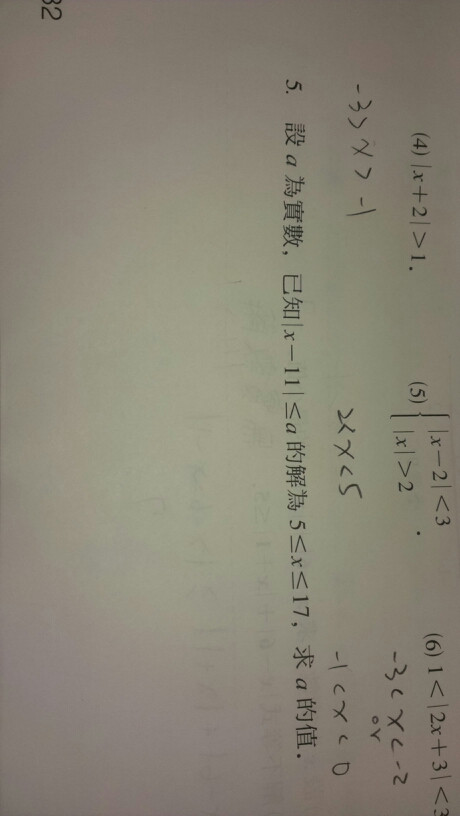 (4) |x+2|>1.
(5) { |x-2|<3
|x|>2 .
(6) 1<|2x+3|<3
-3>x>-1
2<x<5
-3<x<-2
or
-1<x<0
5. 設 a 為實數，已知|x-11|≤a 的解為 5≤x≤17，求 a 的值.
32